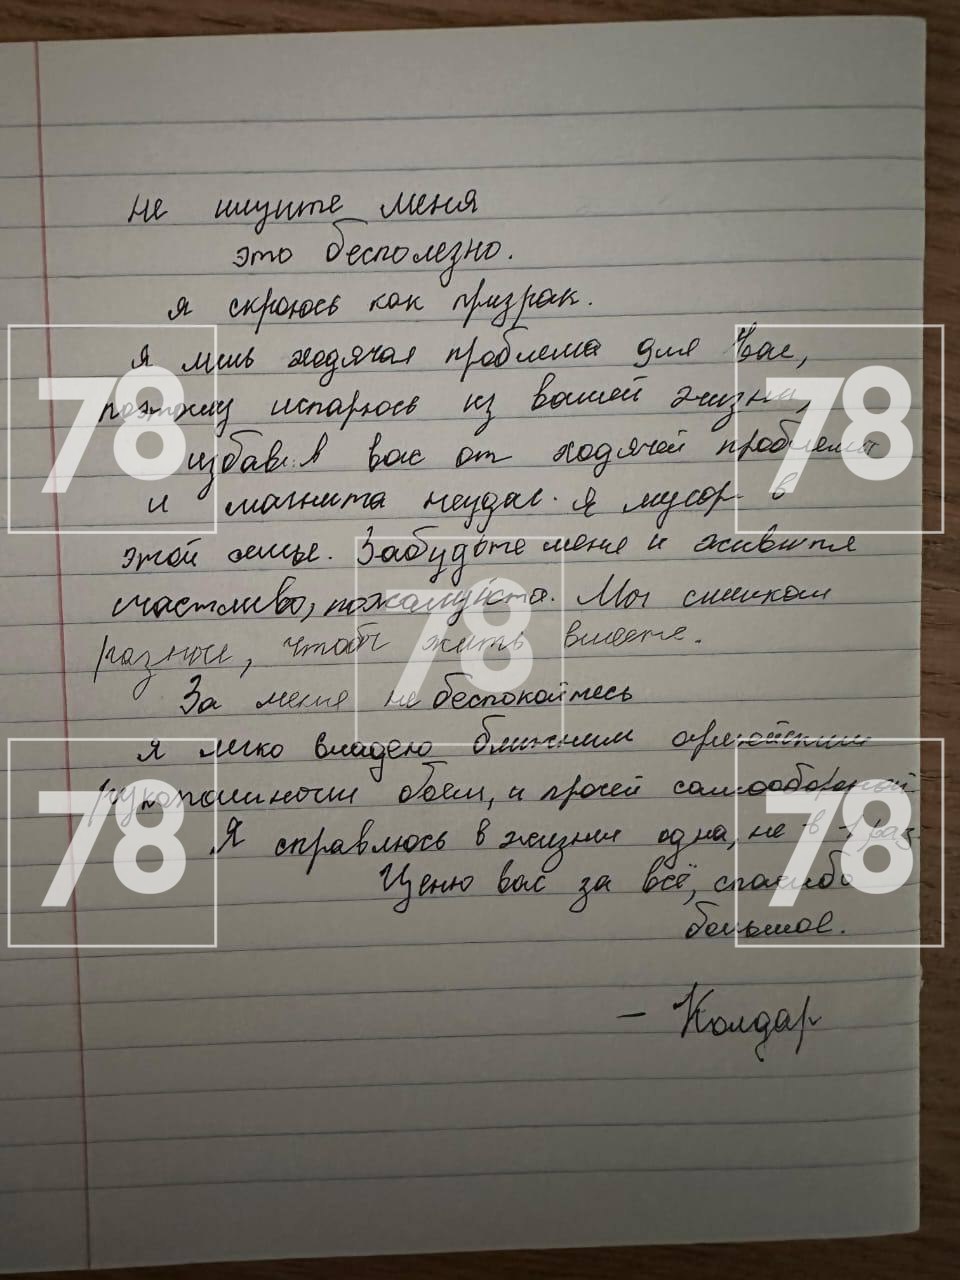 не ищите меня
это бесполезно.
я скроюсь как призрак.
Я лишь ходячая проблема для Вас,
поэтому испарюсь из вашей жизни,
избавив вас от ходячей проблемы
и магнита неудач. Я мусор в
этой семье. Забудьте меня и живите
счастливо, пожалуйста. Мы слишком
разные, чтобы жить вместе.
За меня не беспокойтесь
я легко владею ближним армейским
рукопашным боем, и прочей самообороной.
Я справлюсь в жизни одна, не в 1 раз
Ценю вас за всё, спасибо
большое.
— Колдар
78
78
78
78
78